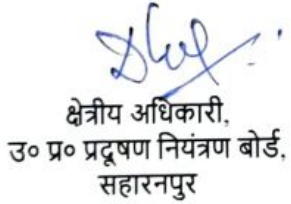 क्षेत्रीय अधिकारी,
उ० प्र० प्रदूषण नियंत्रण बोर्ड,
सहारनपुर